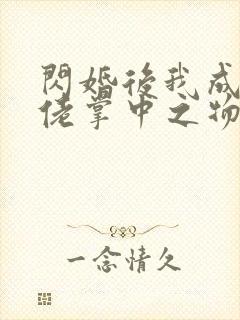 閃婚後我成
佬掌中之物
一念情久